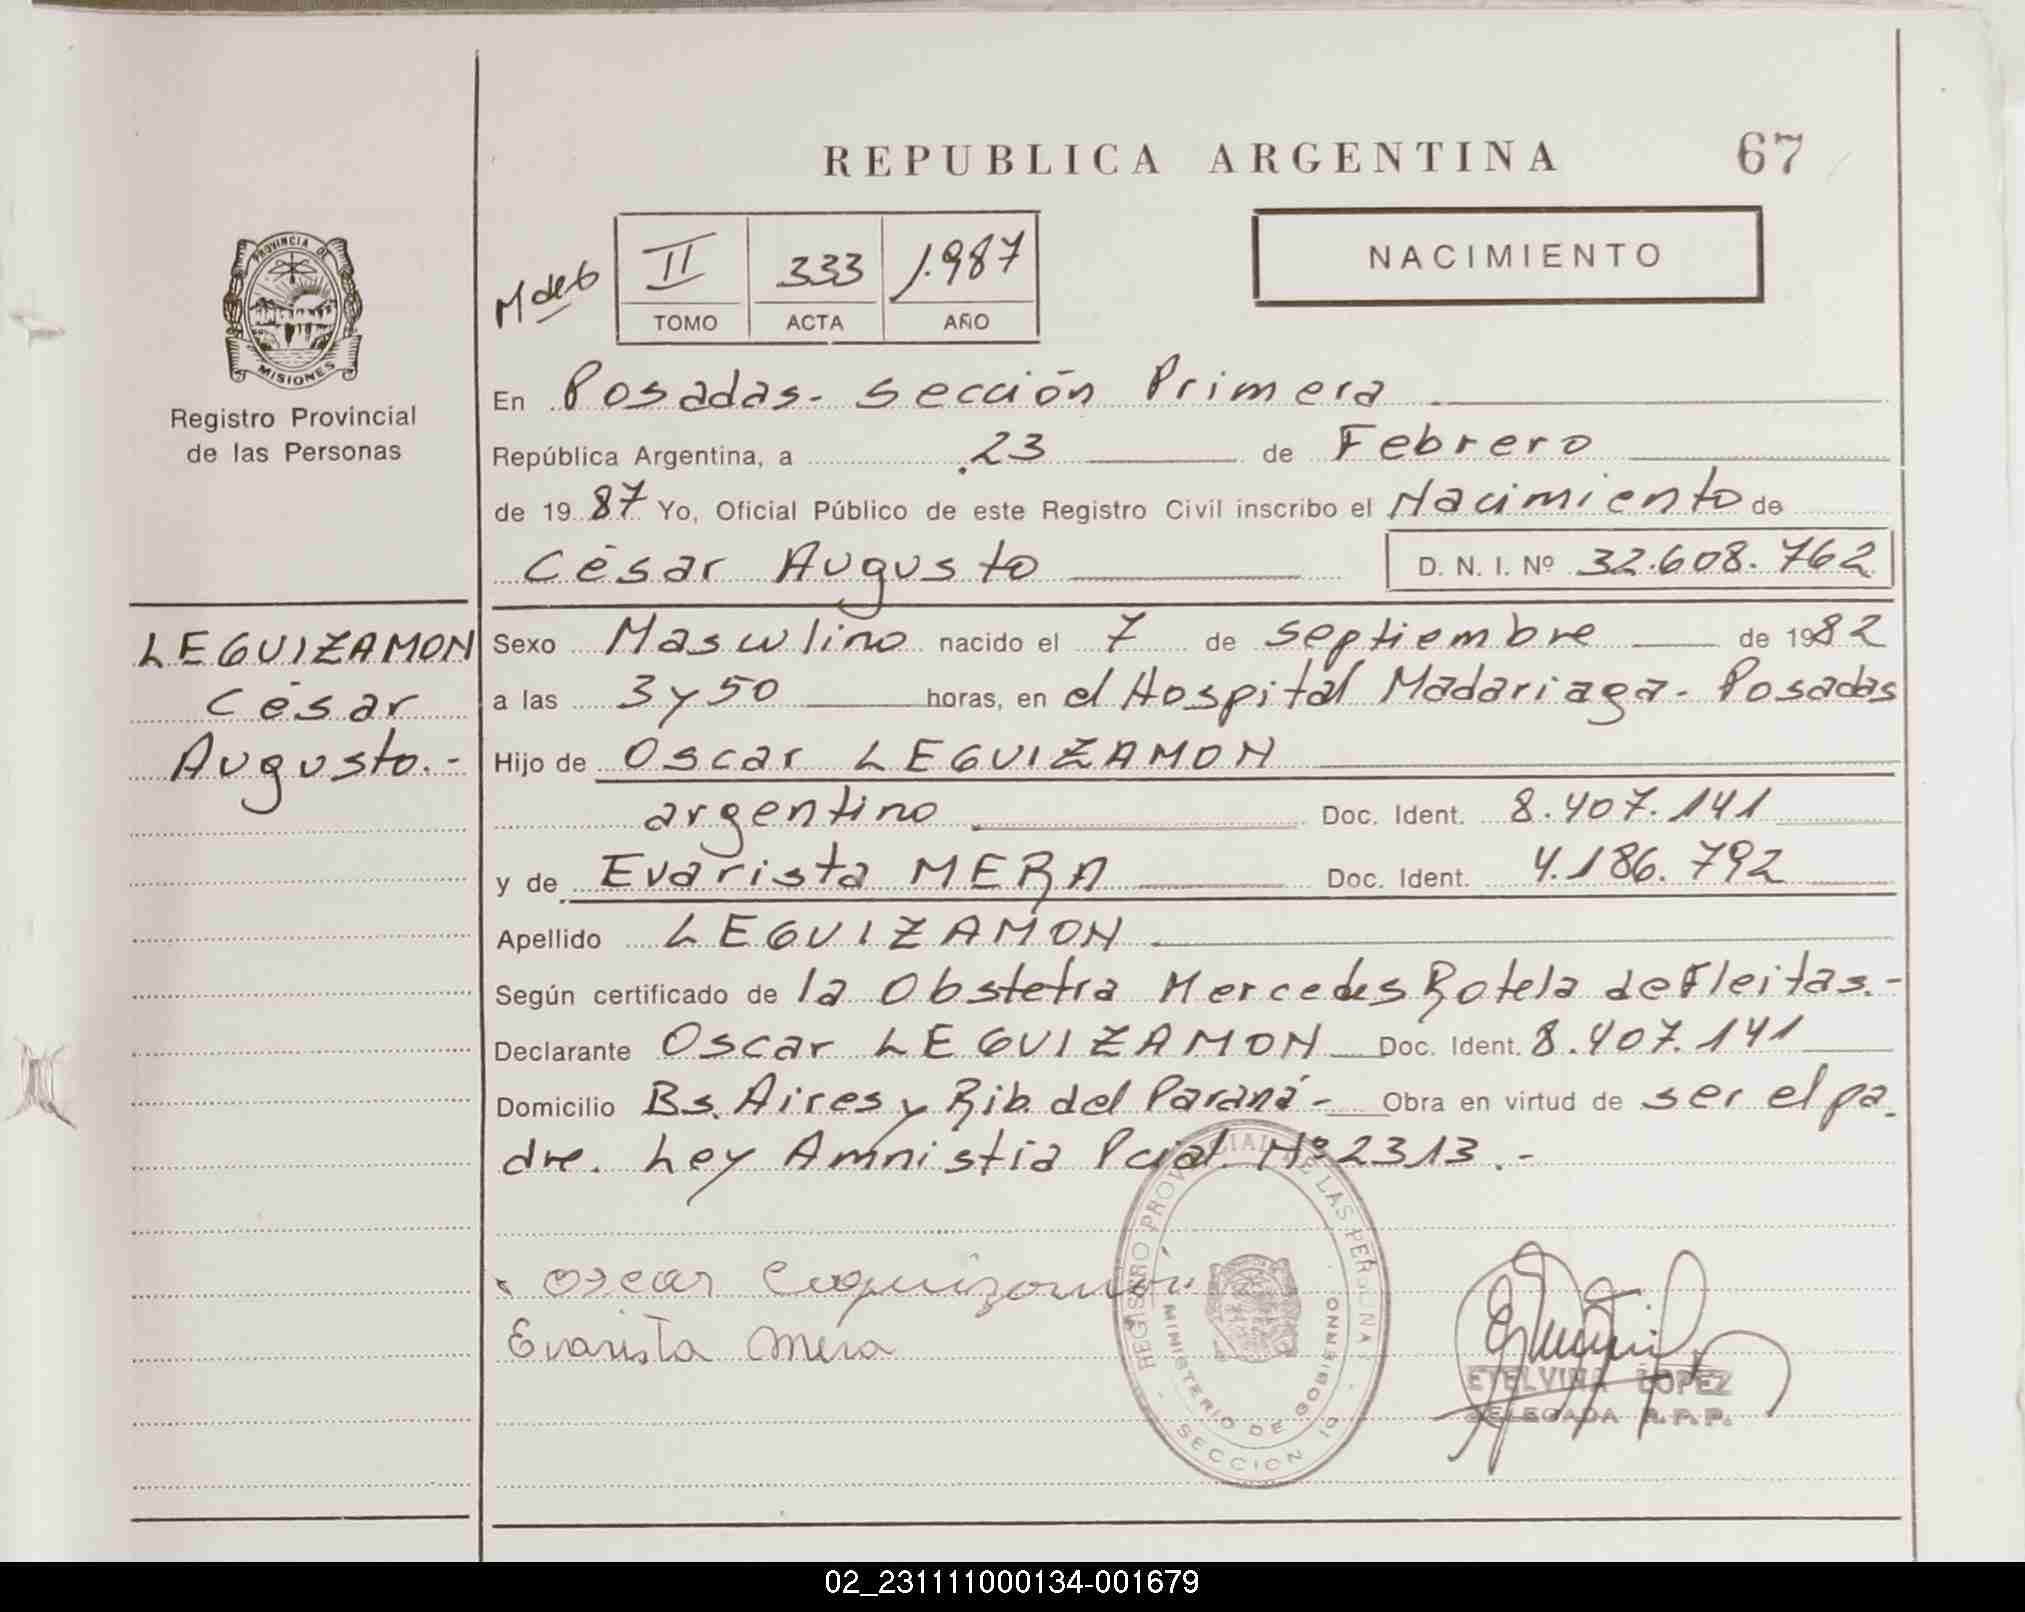 REPUBLICA ARGENTINA
67
PROVINCIA DE
MISIONES
Registro Provincial
de las Personas
M de 6
II 333 1.987
TOMO ACTA AÑO
NACIMIENTO
En Posadas- Sección Primera
República Argentina, a 23 de Febrero
de 1987 Yo, Oficial Público de este Registro Civil inscribo el Nacimiento de
César Augusto D. N. I. Nº 32.608.762
LEGUIZAMON
César
Augusto.-
Sexo Masculino nacido el 7 de Septiembre de 1982
a las 3 y 50 horas, en el Hospital Madariaga- Posadas
Hijo de Oscar LEGUIZAMON
argentino Doc. Ident. 8.407.141
y de Evarista MERA Doc. Ident. 4.186.792
Apellido LEGUIZAMON
Según certificado de la Obstetra Mercedes Rotela de Fleitas.-
Declarante Oscar LEGUIZAMON Doc. Ident. 8.407.141
Domicilio Bs. Aires y Rib. del Paraná- Obra en virtud de ser el pa-
dre. Ley Amnistia Pcial. Nº 2313.-
Oscar Leguizamón
Evarista Mera
REGISTRO PROVINCIAL DE LAS PERSONAS
MINISTERIO DE GOBIERNO
SECCION 1º
ETELVINA LOPEZ
DELEGADA R.P.P.
02_231111000134-001679